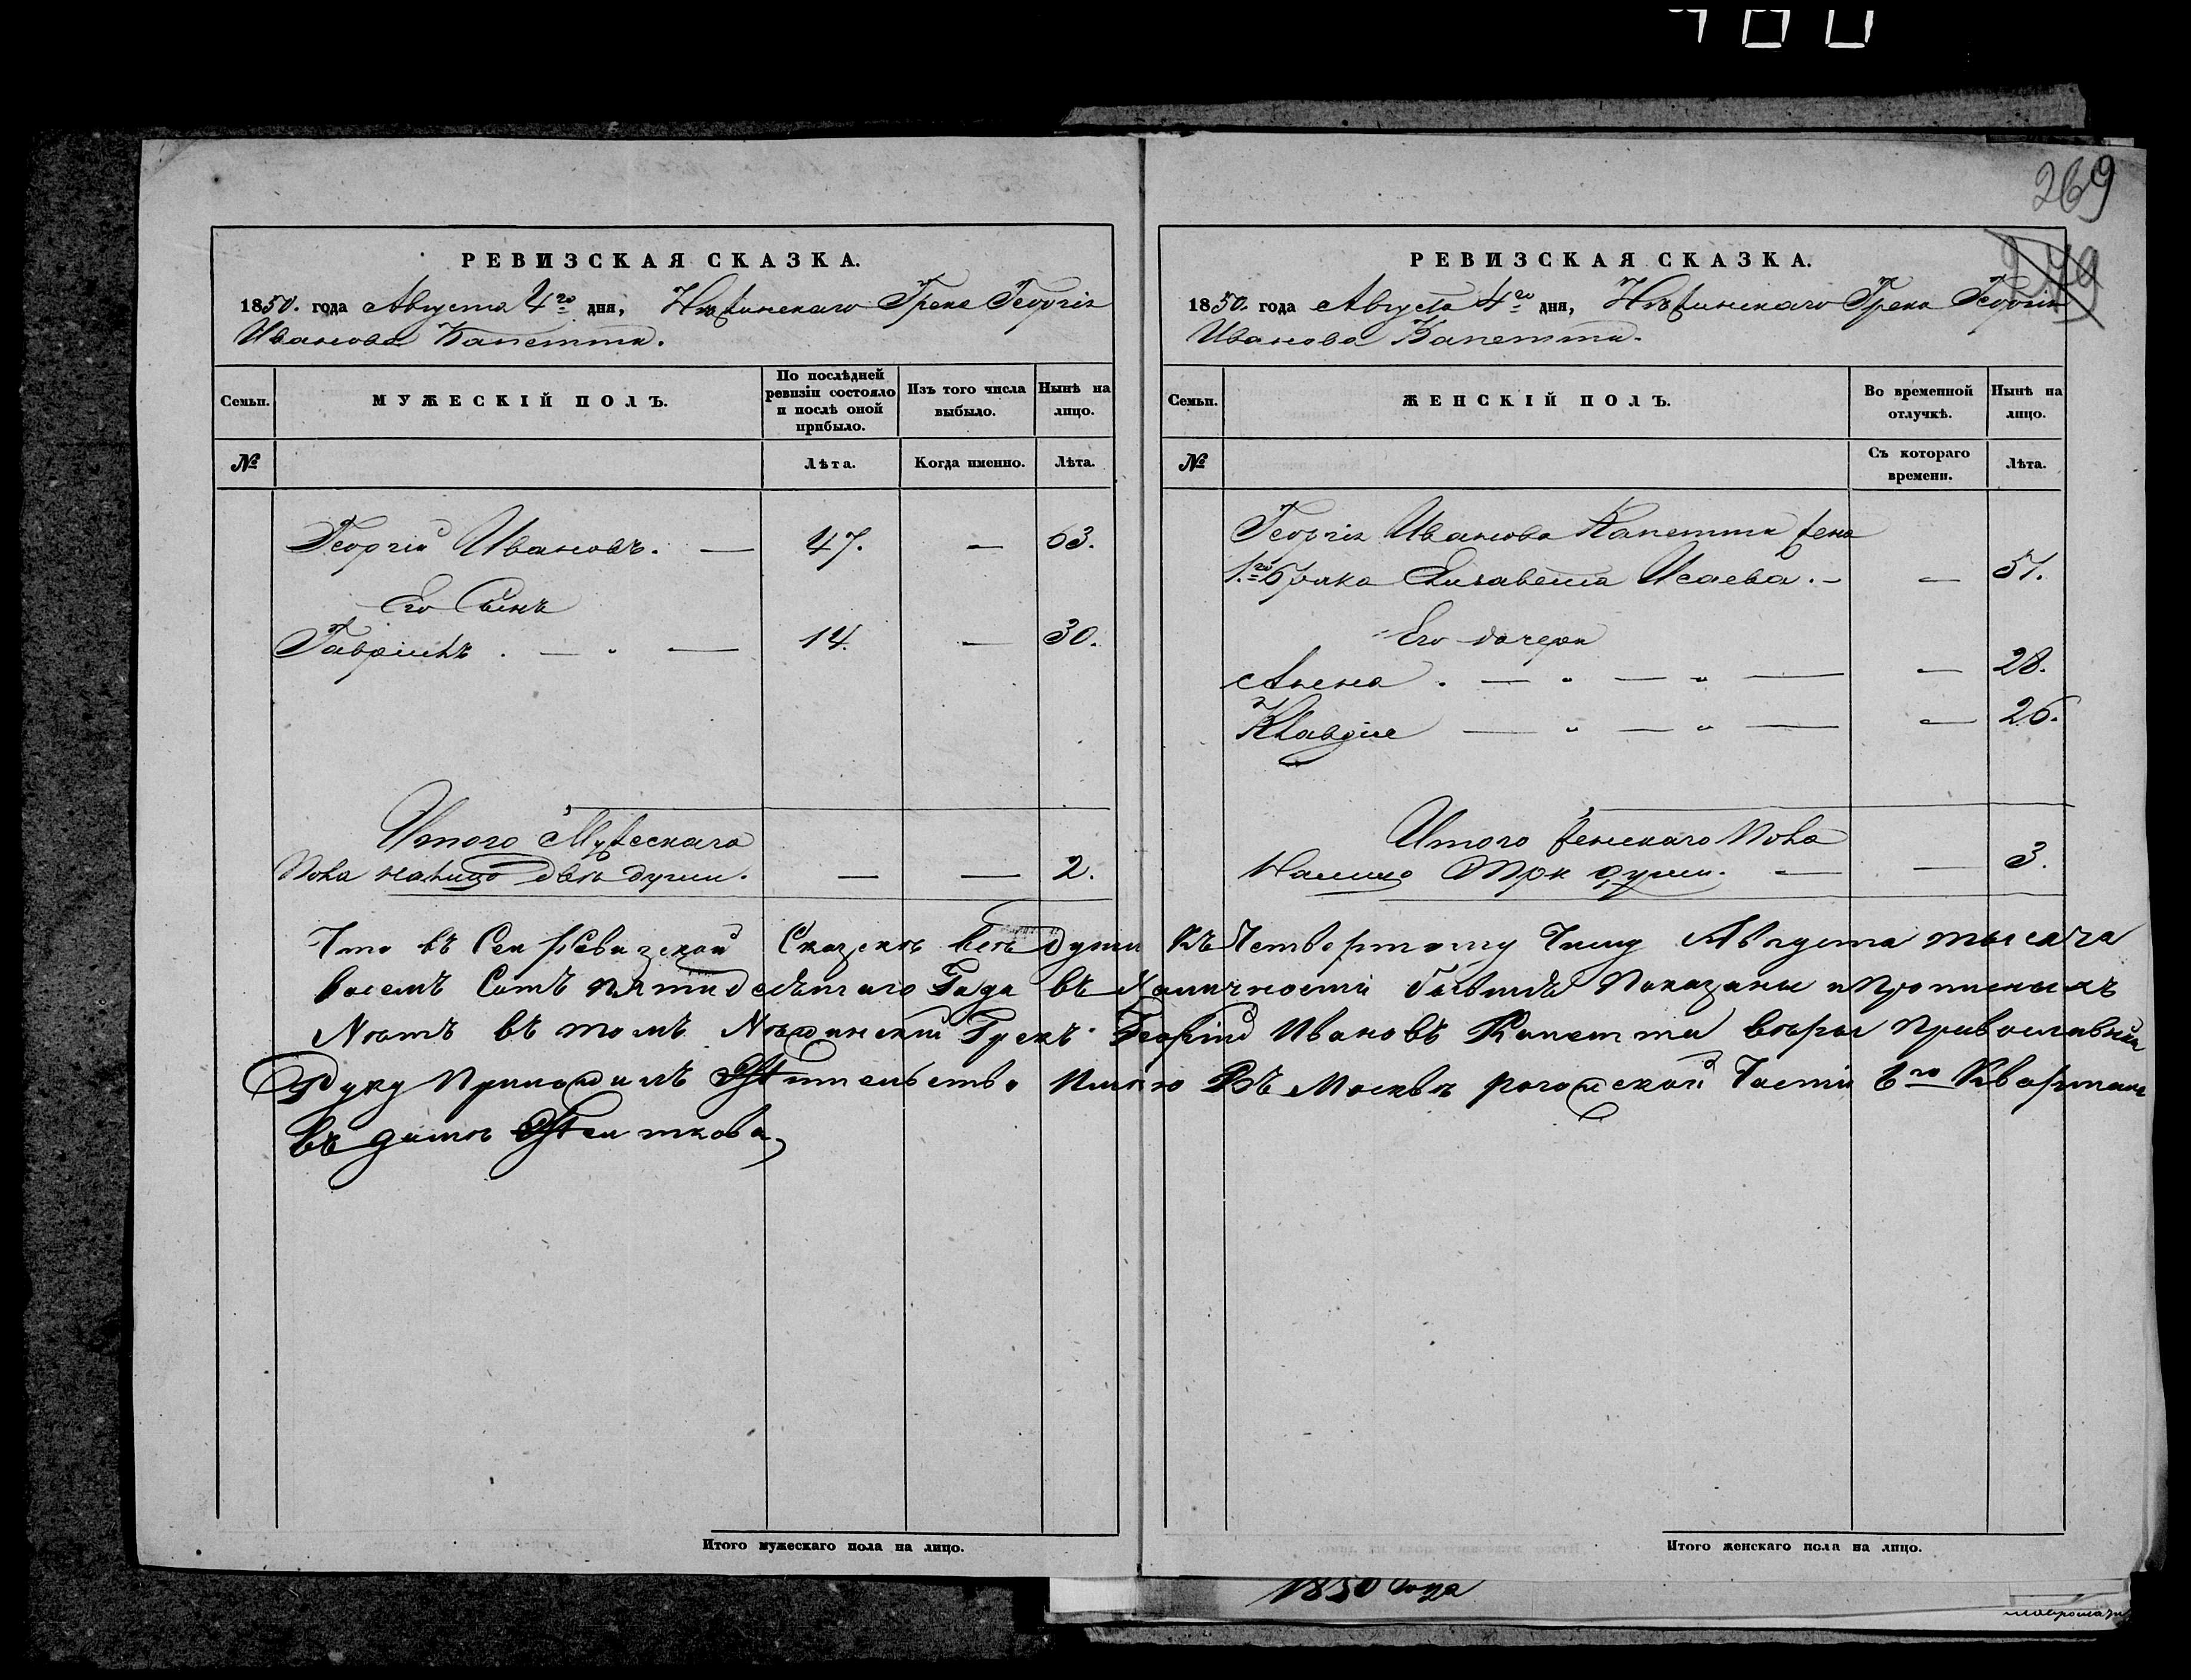 269
РЕВИЗСКАЯ СКАЗКА.
1850. года Августа 4го дня, Нѣжинскаго Грека Георгія
Иванова Капетти.
Семьи.
МУЖЕСКІЙ ПОЛЪ.
По послѣдней ревизіи состояло и послѣ оной прибыло.
Изъ того числа выбыло.
Нынѣ на лицо.
№
Лѣта.
Когда именно.
Лѣта.
Георгій Ивановъ. — 47. — 63.
Его Сынъ
Гавріилъ . — " — 14. — 30.
Итого Мужескаго
Пола налицо двѣ души. — — 2.
РЕВИЗСКАЯ СКАЗКА.
1850. года Августа 4го дня, Нѣжинскаго Грека Георгія
Иванова Капетти.
Семьи.
ЖЕНСКІЙ ПОЛЪ.
Во временной отлучкѣ.
Нынѣ на лицо.
№
Съ котораго времени.
Лѣта.
Георгія Иванова Капетти жена
1.го брака Елизавета Исаева. — — 51.
Его дочери
Анна . — " — " — — 28.
Клавдія — " — " — — 26.
Итого женскаго Пола
Налицо Три души. — — 3.
Что въ Сей Ревизской Сказскѣ всѣ души Къ Четвертому Числу Августа тысяча
восемъ Сотъ пятидесятаго Года въ Наличности бывшія Показаны и Прописныхъ
Нѣтъ въ томъ Нѣжинскій Грекъ Георгій Ивановъ Капетти вѣры Православной
Руку Приложилъ Жительство Имѣю Въ Москвѣ рогожской Части 6го Квартала
въ домѣ
Итого мужескаго пола на лицо.
Итого женскаго пола на лицо.
1850 года